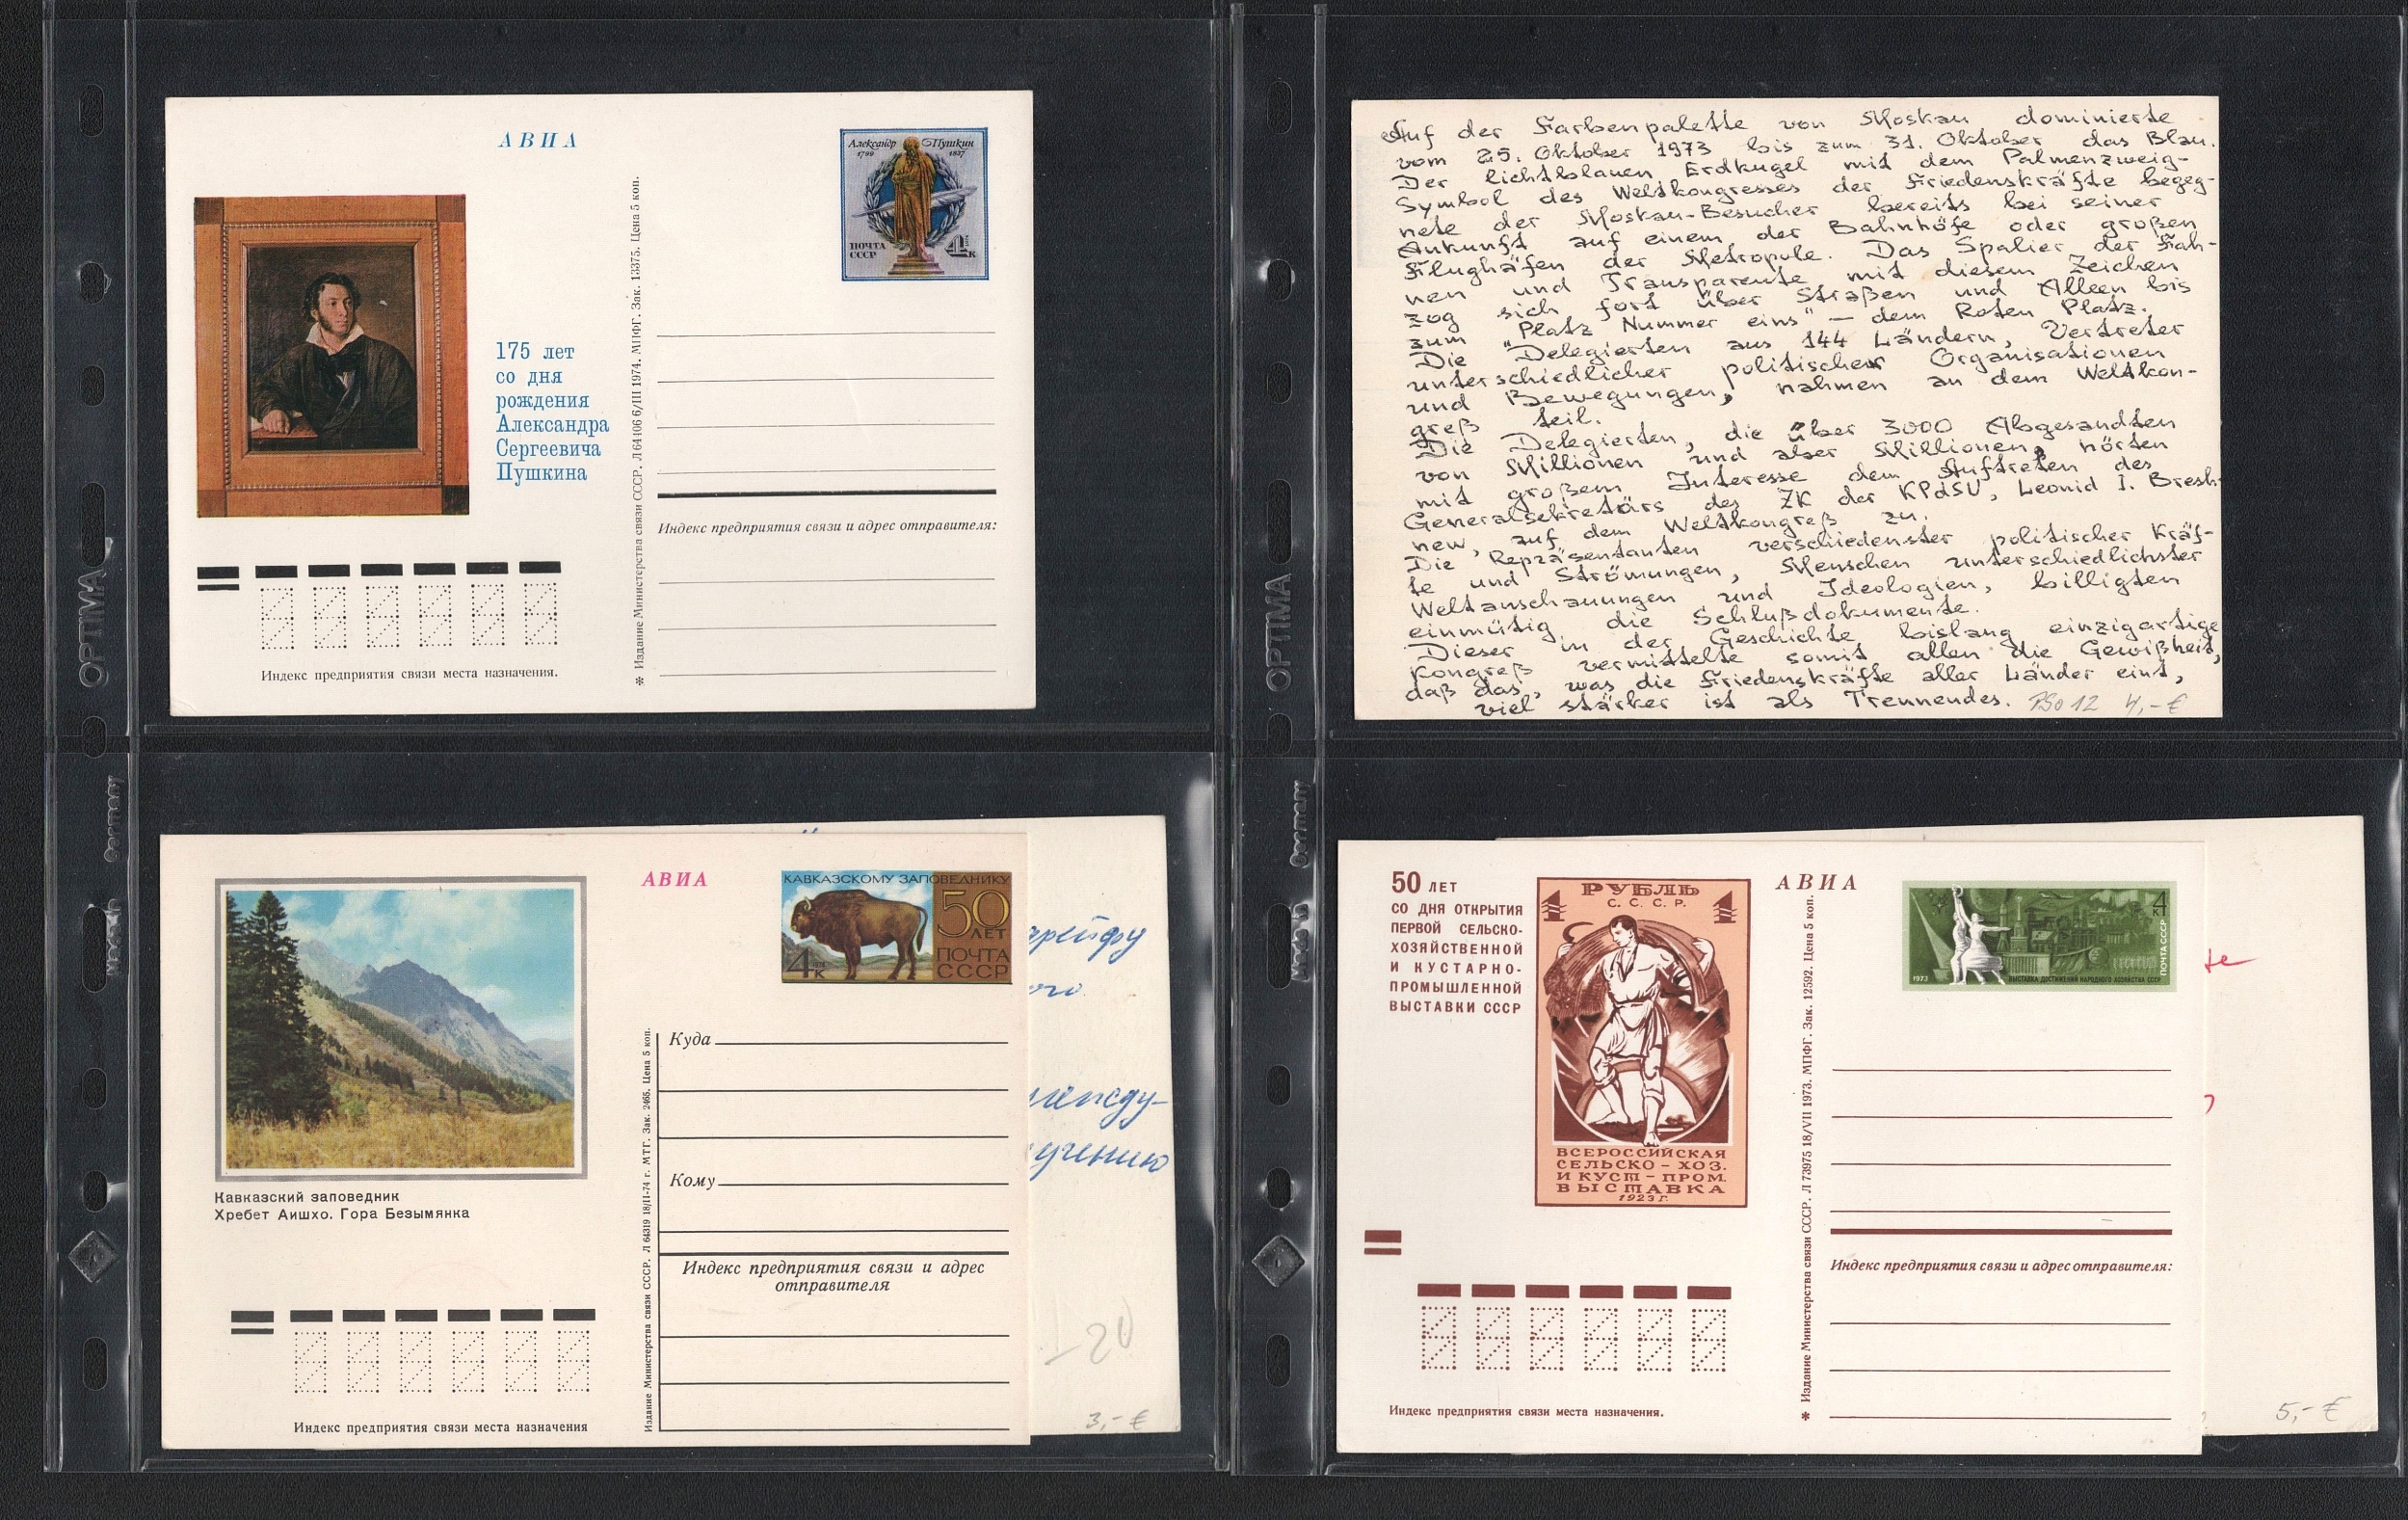 АВИА
Александр Пушкин
1799 1837
ПОЧТА
СССР
4К
175 лет
со дня
рождения
Александра
Сергеевича
Пушкина
Индекс предприятия связи и адрес отправителя:
Индекс предприятия связи места назначения.
✻ Издание Министерства связи СССР. Л 64106 6/III 1974. МПФГ. Зак. 13375. Цена 5 коп.
OPTIMA
Made in Germany
Auf der Farbenpalette von Moskau dominierte
vom 25. Oktober 1973 bis zum 31. Oktober das Blau.
Der lichtblauen Erdkugel mit dem Palmenzweig-
Symbol des Weltkongresses der Friedenskräfte begeg-
nete der Moskau-Besucher bereits bei seiner
Ankunft auf einem der Bahnhöfe oder großen
Flughäfen der Metropole. Das Spalier der Fah-
nen und Transparente mit diesem Zeichen
zog sich fort über Straßen und Alleen bis
zum „Platz Nummer eins" – dem Roten Platz.
Die Delegierten aus 144 Ländern, Vertreter
unterschiedlicher politischer Organisationen
und Bewegungen, nahmen an dem Weltkon-
greß teil.
Die Delegierten, die über 3000 Abgesandten
von Millionen und aber Millionen, hörten
mit großem Interesse dem Auftreten des
Generalsekretärs des ZK der KPdSU, Leonid I. Bresh-
new, auf dem Weltkongreß zu.
Die Repräsentanten verschiedenster politischer Kräf-
te und Strömungen, Menschen unterschiedlichster
Weltanschauungen und Ideologien, billigten
einmütig die Schlußdokumente.
Dieser in der Geschichte bislang einzigartige
Kongreß vermittelte somit allen die Gewißheit,
daß das, was die Friedenskräfte aller Länder eint,
viel stärker ist als Trennendes. PSo 12 4,- €
OPTIMA
Made in Germany
АВИА
КАВКАЗСКОМУ ЗАПОВЕДНИКУ
50
ЛЕТ
ПОЧТА
СССР
4К
1974
Кавказский заповедник
Хребет Аишхо. Гора Безымянка
Куда
Кому
Индекс предприятия связи и адрес
отправителя
Индекс предприятия связи места назначения
Издание Министерства связи СССР. Л 64319 18/II-74 г. МТГ. Зак. 2465. Цена 5 коп.
120
3,- €
50 ЛЕТ
СО ДНЯ ОТКРЫТИЯ
ПЕРВОЙ СЕЛЬСКО-
ХОЗЯЙСТВЕННОЙ
И КУСТАРНО-
ПРОМЫШЛЕННОЙ
ВЫСТАВКИ СССР
1 РУБЛЬ 1
С. С. С. Р.
ВСЕРОССИЙСКАЯ
СЕЛЬСКО – ХОЗ.
И КУСТ – ПРОМ.
ВЫСТАВКА
1923 г.
АВИА
4 к
ПОЧТА СССР
1973 ВЫСТАВКА ДОСТИЖЕНИЙ НАРОДНОГО ХОЗЯЙСТВА СССР
Индекс предприятия связи и адрес отправителя:
Индекс предприятия связи места назначения.
✻ Издание Министерства связи СССР. Л 73975 18/VII 1973. МПФГ. Зак. 12592. Цена 5 коп.
te
5,- €